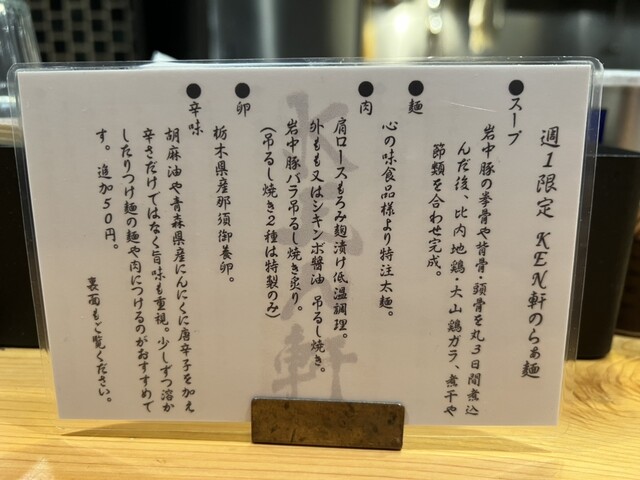 週1限定 KEN軒のらぁ麺
●スープ
岩中豚の拳骨や背骨・頭骨を丸3日間煮込
んだ後、比内地鶏・大山鶏ガラ、煮干や
節類を合わせ完成。
●麺
心の味食品様より特注太麺。
●肉
肩ロースもろみ麹漬け低温調理。
外もも又はシキンボ醬油 吊るし焼き。
岩中豚バラ吊るし焼き炙り。
(吊るし焼き2種は特製のみ)
●卵
栃木県産那須御養卵。
●辛味
胡麻油や青森県産にんにくに唐辛子を加え
辛さだけではなく旨味も重視。少しずつ溶か
したりつけ麺の麺や肉につけるのがおすすめで
す。追加50円。
裏面もご覧ください。